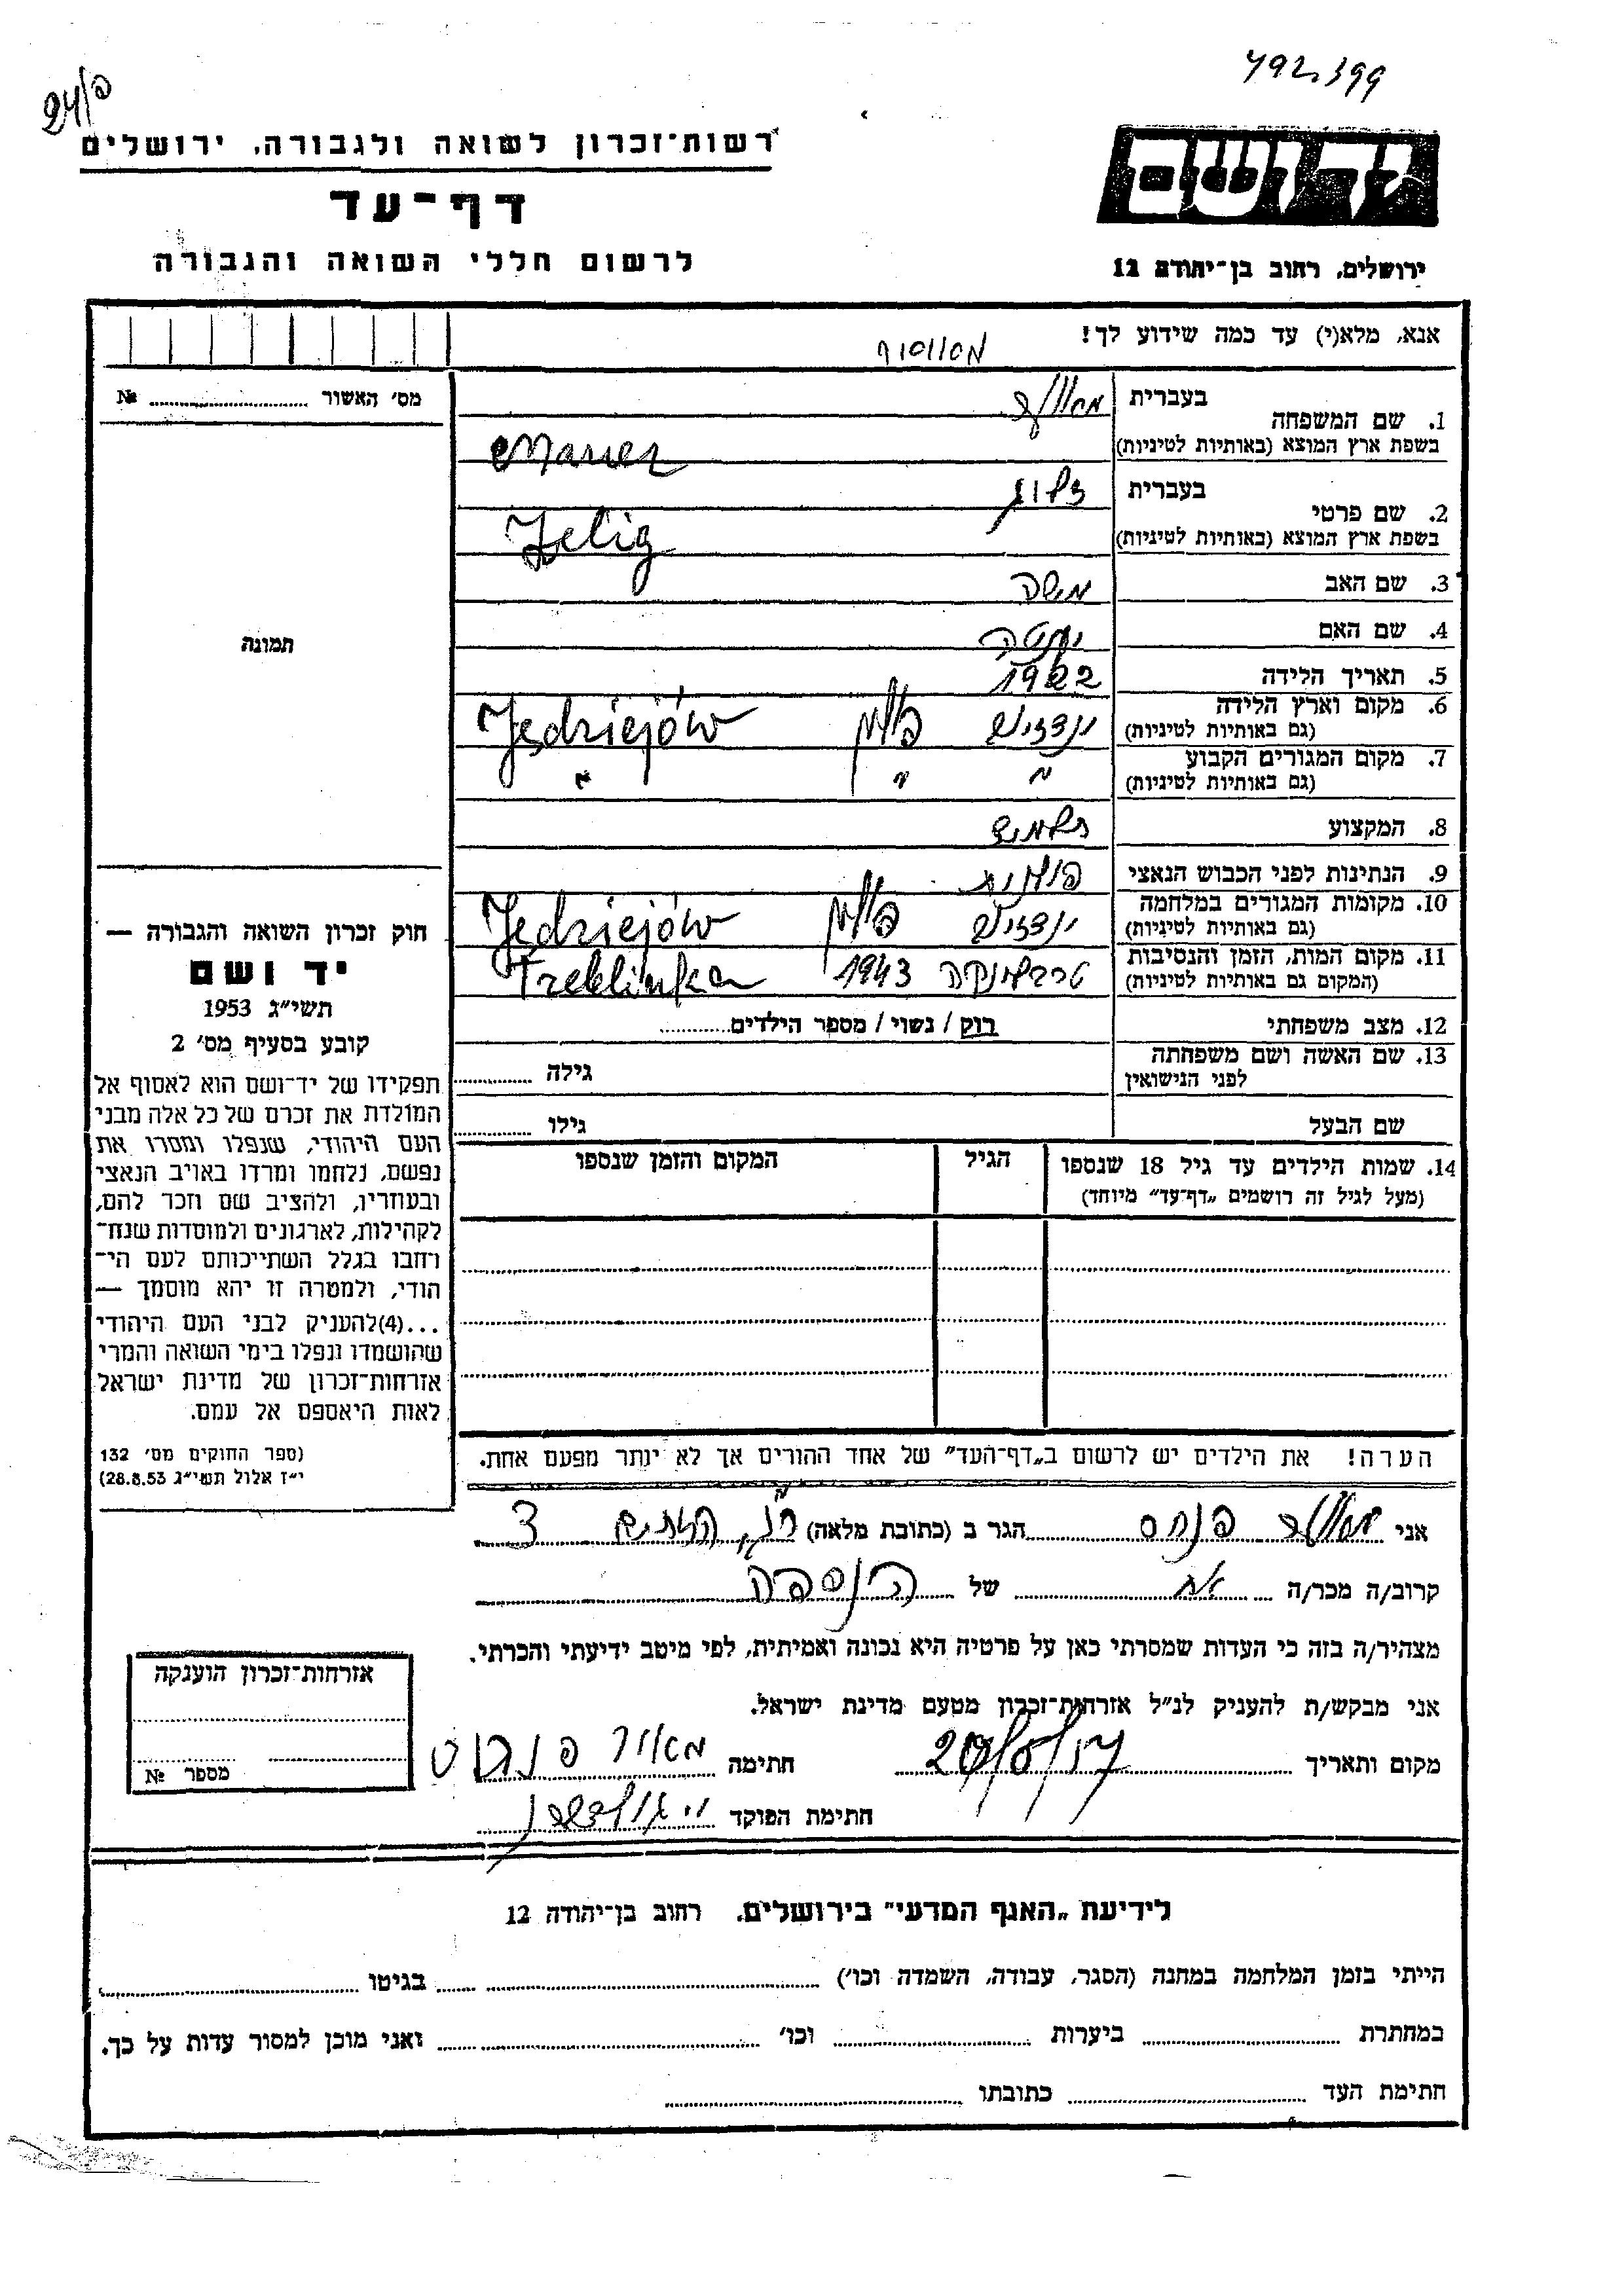 492.399
24/פ
רשות־זכרון לשואה ולגבורה, ירושלים
דף־עד
לרשום חללי השואה והגבורה
ירושלים, רחוב בן־יהודה 12
אנא, מלא(י) עד כמה שידוע לך!
מס׳ האשור № 
1. שם המשפחה בעברית
בשפת ארץ המוצא (באותיות לטיניות)
2. שם פרטי בעברית זליג
בשפת ארץ המוצא (באותיות לטיניות) Zelig
3. שם האב משה
4. שם האם
5. תאריך הלידה 1922
6. מקום וארץ הלידה
(גם באותיות לטיניות) פולין Jędziejów
7. מקום המגורים הקבוע
(גם באותיות לטיניות) " " "
8. המקצוע תלמיד
9. הנתינות לפני הכבוש הנאצי פולנית
10. מקומות המגורים במלחמה
(גם באותיות לטיניות) פולין Jędziejów
11. מקום המות, הזמן והנסיבות
(המקום גם באותיות לטיניות) טרבלינקה 1943 Treblinka
12. מצב משפחתי רוק / נשוי / מספר הילדים
13. שם האשה ושם משפחתה
לפני הנישואין גילה
שם הבעל גילו
14. שמות הילדים עד גיל 18 שנספו הגיל המקום והזמן שנספו
(מעל לגיל זה רושמים „דף־עד״ מיוחד)
הערה! את הילדים יש לרשום ב„דף־העד״ של אחד ההורים אך לא יותר מפעם אחת.
תמונה
חוק זכרון השואה והגבורה —
יד ושם
תשי״ג 1953
קובע בסעיף מס׳ 2
תפקידו של יד־ושם הוא לאסוף אל
המולדת את זכרם של כל אלה מבני
העם היהודי, שנפלו ומסרו את
נפשם, נלחמו ומרדו באויב הנאצי
ובעוזריו, ולהציב שם וזכר להם,
לקהילות, לארגונים ולמוסדות שנח־
רחבו בגלל השתייכותם לעם הי־
הודי, ולמטרה זו יהא מוסמך —
...(4)להעניק לבני העם היהודי
שהושמדו ונפלו בימי השואה והמרי
אזרחות־זכרון של מדינת ישראל
לאות היאספם אל עמם.
(ספר החוקים מס׳ 132
י״ז אלול תשי״ג 28.8.53)
אני פנחס הגר ב (כתובת מלאה)
קרוב/ה מכר/ה אח של הנספה
מצהיר/ה בזה כי העדות שמסרתי כאן על פרטיה היא נכונה ואמיתית, לפי מיטב ידיעתי והכרתי.
אני מבקש/ת להעניק לנ״ל אזרחות־זכרון מטעם מדינת ישראל.
מקום ותאריך חתימה
חתימת הפוקד
אזרחות־זכרון הוענקה
מספר №
לידיעת „האגף המדעי״ בירושלים, רחוב בן־יהודה 12
הייתי בזמן המלחמה במחנה (הסגר, עבודה, השמדה וכו׳) בגיטו
במחתרת ביערות וכו׳ ואני מוכן למסור עדות על כך.
חתימת העד כתובתו